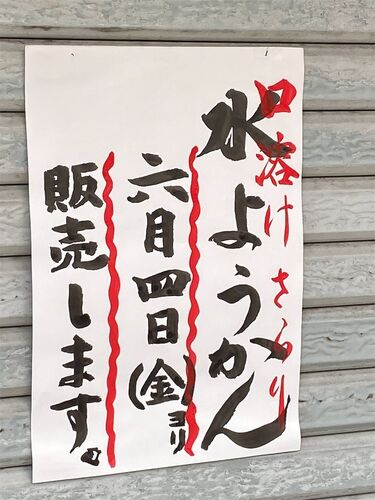 口溶けさらり
水ようかん
六月四日(金)ヨリ
販売します。